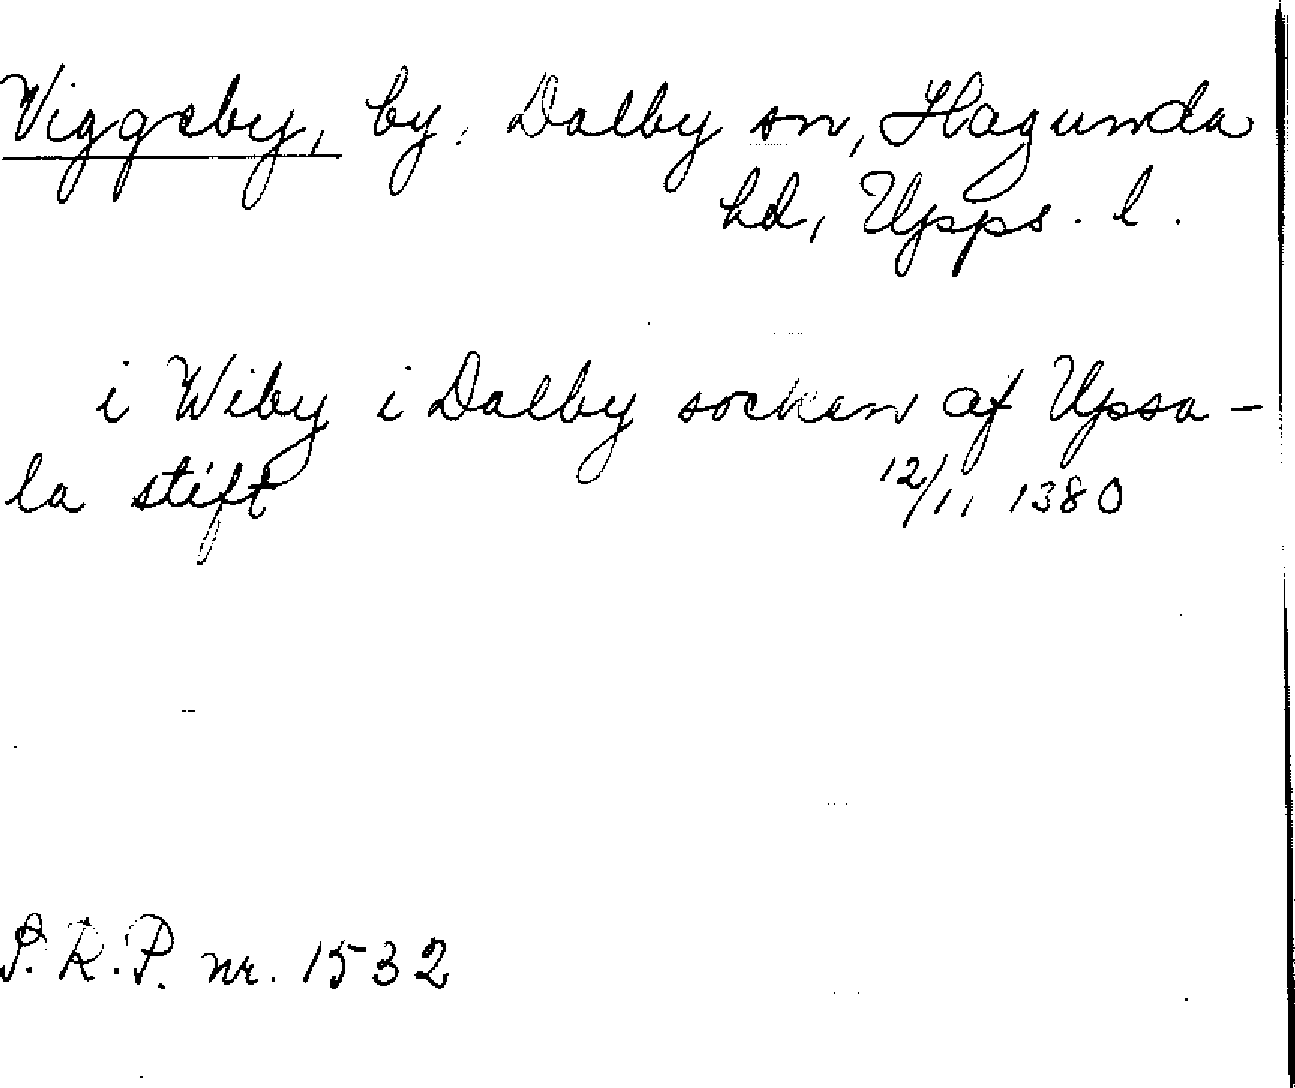 Viggeby, by, Dalby sn, Hagunda
hd, Upps. l.
i Wiby i Dalby socken af Upsa-
la stift 12/11 1380
S.R.P. nr. 1532